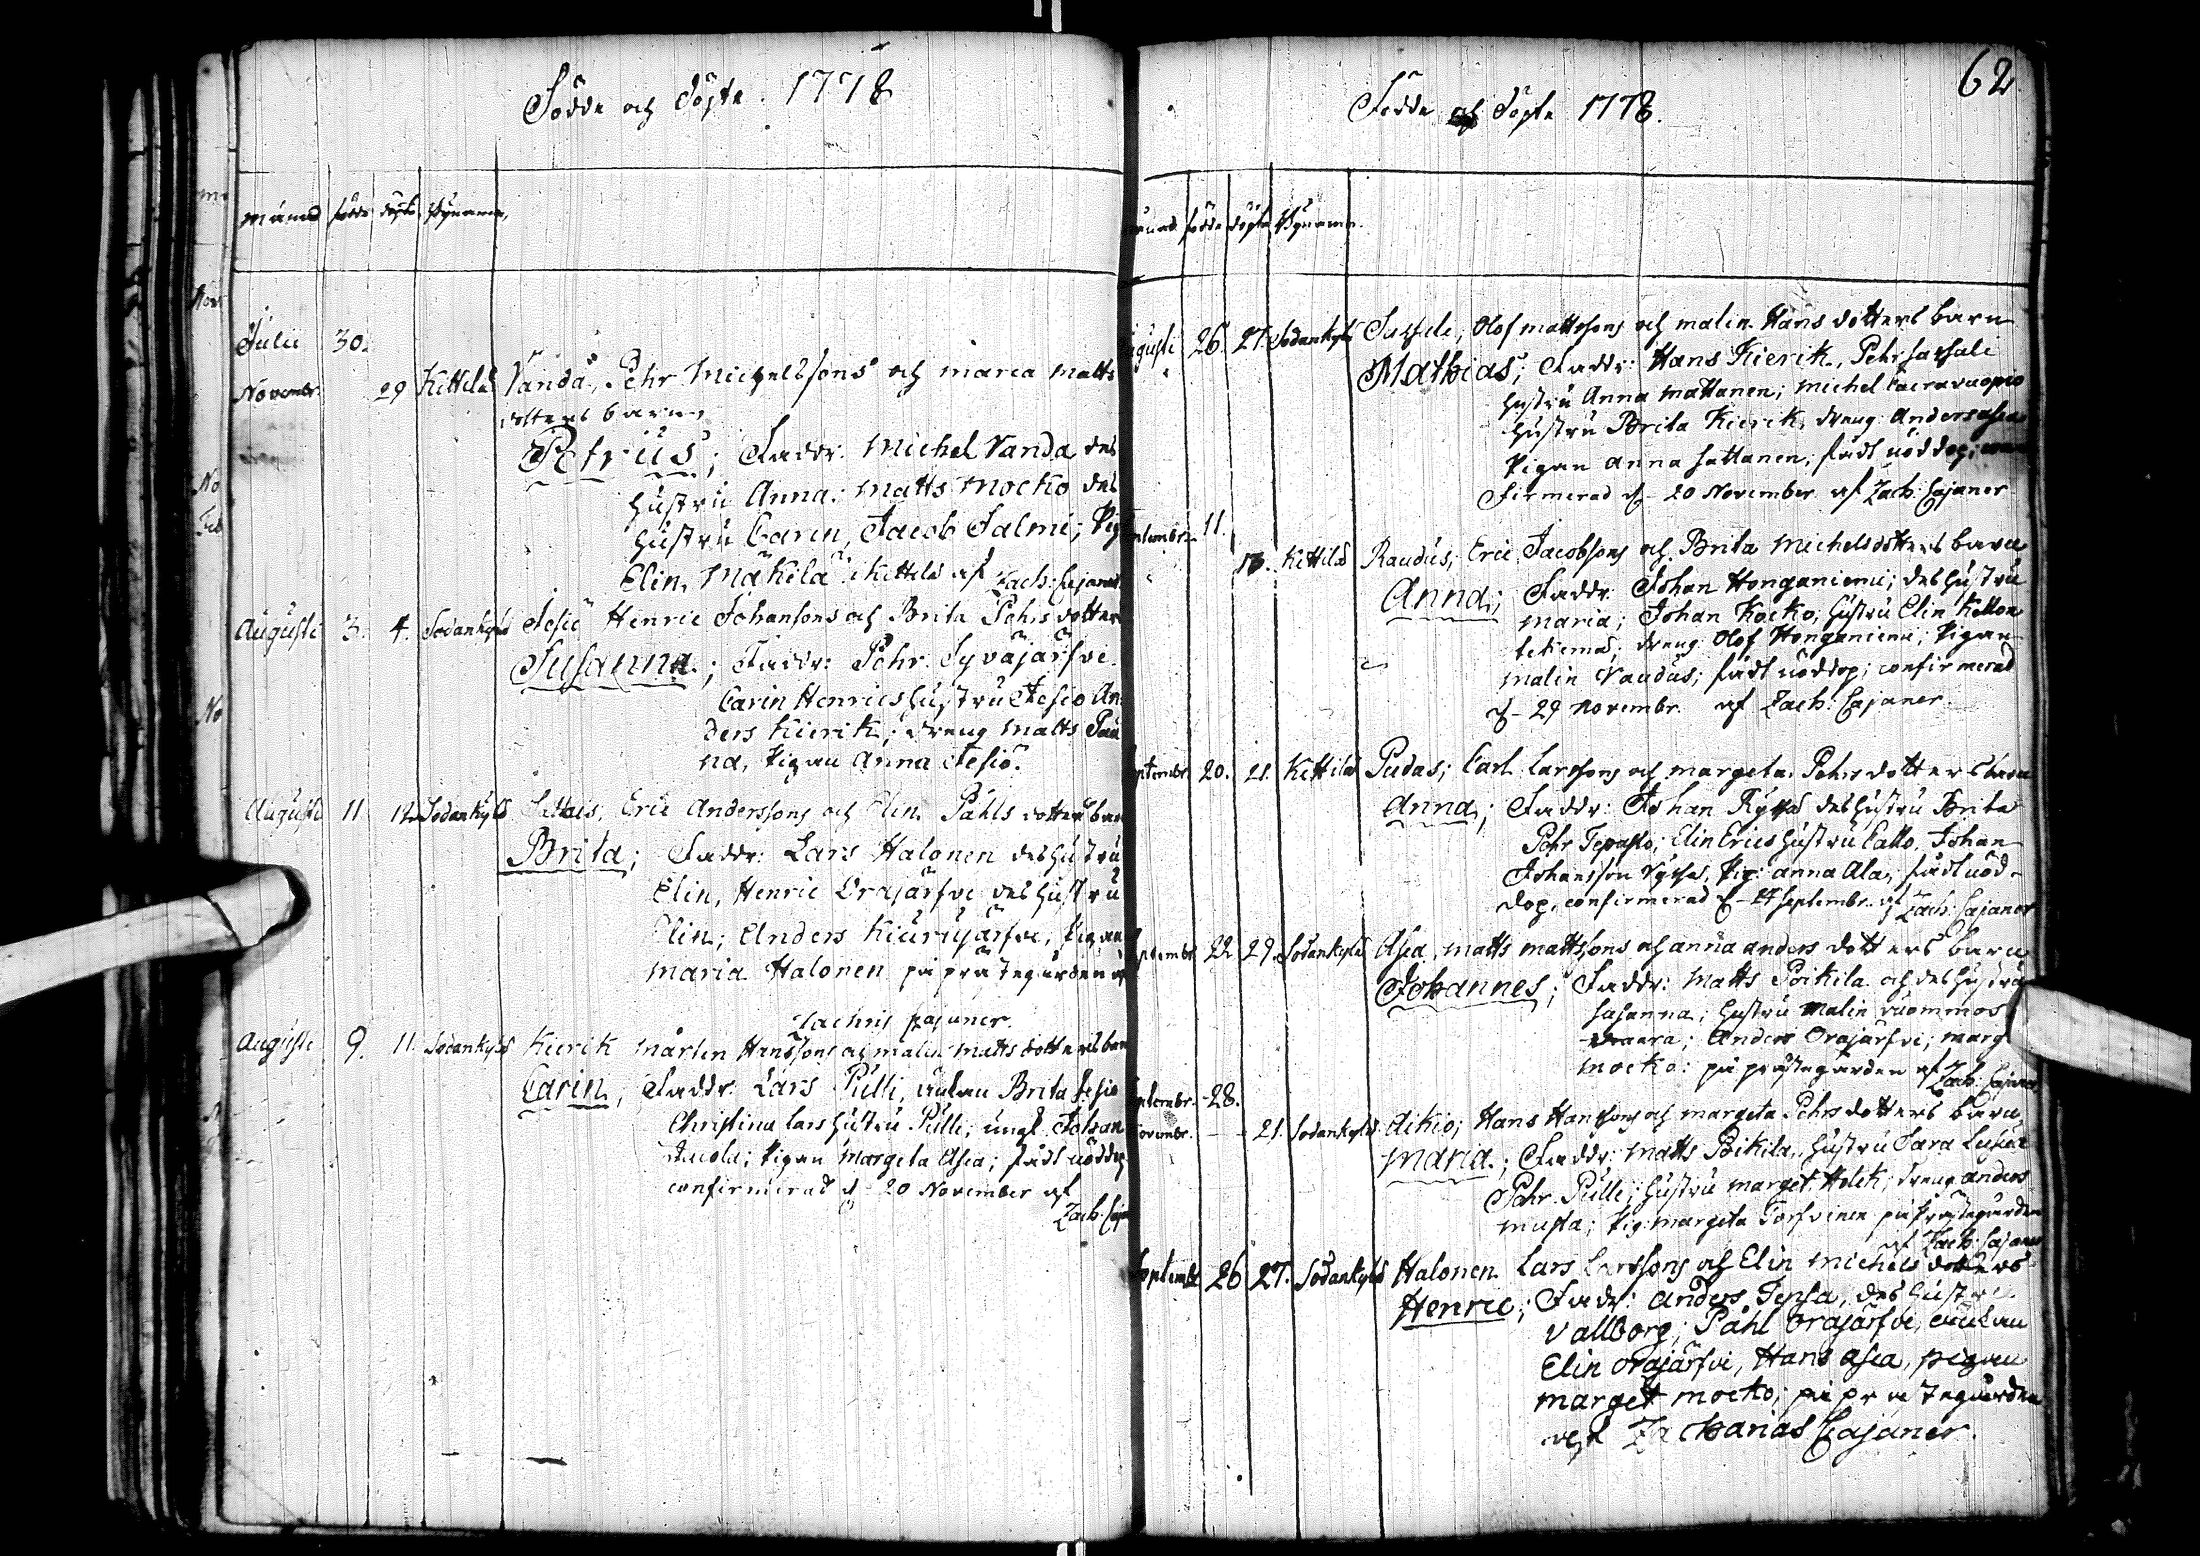 Födde och Döpte. 1778
månad födde döpte Bynamn,
Julii 30.
Novembr. 29 Kittilä Vanda, Pehr Michelssons och maria matts
dotters barn,
Petrus; Faddr. Michel Vanda des
hustru Anna: Matts Mocko des
hustru Carin, Jacob Salmi; Pig
Elin Mäkilä i Kittilä af Zach: Cajaner
Augusti 3. 4. Sodankylä Jesiö Henric Johansons och Brita Pehrs dotter
Susanna; Faddr: Pehr Syväjärfvi.
Carin Henrics hustru Jesiö An-
ders Kierik; dreng Matts Pau
na, Pigan Anna Jesiö.
Augusti 11 12. Sodankylä Sattais, Eric Anderssons och Elin Påhls dotters bar
Brita; Faddr: Lars Halonen des hustru
Elin, Henric Orajärfvi des hustru
Elin; Anders Kiurujärfvi, Pigan
maria Halonen på prästegården af
Zachris Cajaner.
Augusti 9. 11. Sodankylä Kierik mårten Hanssons och malin matts dotters barn
Carin; Faddr. Lars Pulli, änkan Brita Jesiö
Christina Lars hustru Pulli; ungk. Johan
Pigan Margeta Asia; fådt nöddop
confirmerad d - 20 November af
Zach: Caja
62
Födde och Döpte 1778.
månad födde döpte Bynamn.
Augusti 26. 27. Sodankylä Olof mattssons och malin Hans dotters barn
Mathias; Faddr: Hans Kierik, Pehr
hustru Anna Mattanen; Michel
hustru Brita Kierik, dreng Anders Asia
Pigan Anna Sattanen; fådt nöddop; con
firmerad d - 20 November af Zach: Cajaner
Septembr. 11.
13. Kittilä Raudus, Eric Jacobsons och Brita Michelsdotters barn
Anna; Faddr: Johan Honganiemi; des hustru
maria; Johan Kocko, hustru Elin
dreng Olof Honganiemi, Pigan
malin Raudus; fådt nöddop; confirmerad
d - 29 Novembr. af Zach: Cajaner
Septembr. 20. 21. Kittilä Pudas; Carl Larssons och margeta Pehrs dotters barn
Anna; Faddr: Johan des hustru Brita
Pehr Tepasto; Elin Erics hustru Johan
Johansson Pig: anna Ala; fådt nöd-
dop, confirmerad d - 24 Septembr. af Zach: Cajaner
Septembr. 22 29. Sodankylä Asia, matts mattssons och anna anders dotters barn
Johannes; Faddr: Matts Poikila och des hustru
Susanna; hustru Malin vuommos
vaara; Anders Orajärfvi; marg
mocko: på prästegården af Zach: Cajaner
Septembr. 28.
Novembr. 21. Sodankylä Aikio; Hans Hanssons och margeta Pehrs dotters barn
Maria; Faddr: matts Poikila, hustru Sara
Pehr Pulli; hustru marget dreng anders
musta; Pig: margeta Torfvinen på prästegården
af Zach: Cajaner
Septembr 26 27. Sodankylä Halonen Lars Larssons och Elin Michels dotters
Henric; Faddr: anders des hustru
Vallborg; Påhl Orajärfvi, änkan
Elin orajärfvi, Hans Asia, pigan
marget mocko; på prästegården
af Zacharias Cajaner.